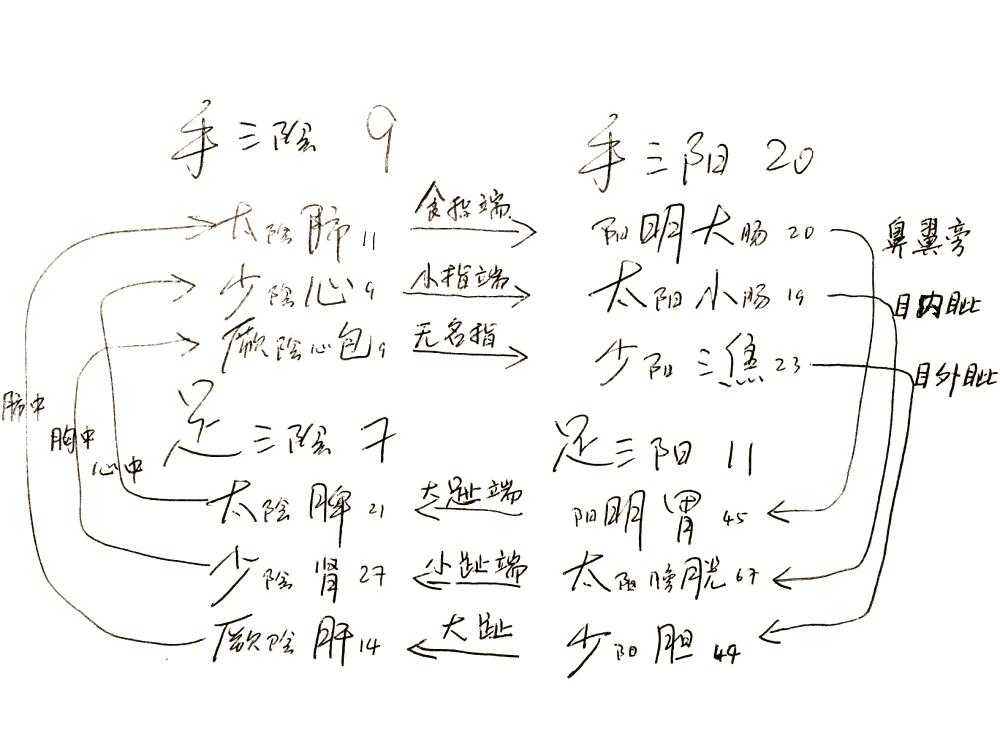 手三陰 9
手三阳 20
太陰肺11
食指端
阳明大肠20
鼻翼旁
少陰心9
小指端
太阳小肠19
目内眦
厥陰心包9
无名指
少阳三焦23
目外眦
肺中
胸中
心中
足三陰 7
足三阳 11
太陰脾21
大趾端
阳明胃45
少陰肾27
小趾端
太阳膀胱67
厥陰肝14
大趾
少阳胆44